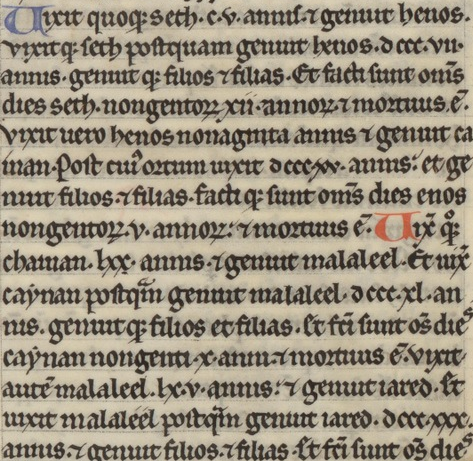 Uixit quoq; seth. c. v. annis. ⁊ genuit henos.
vixit q; seth postquam genuit henos. d ccc. vii.
annis. genuit q; filios ⁊ filias. Et facti sunt om̄s
dies seth. nongentoꝝ xii. annoꝝ. ⁊ mortuus. ē.
Vixit uero henos nonaginta annis ⁊ genuit ca
inan. Post cuiꝰ ortum uixit d ccc. xv. annis. et ge
nuit filios. ⁊ filias. facti q; sunt om̄s dies enos
nongentoꝝ. v. annoꝝ. ⁊ mortuus ē. Uix̄ qͦ;
chainan. lxx. annis. ⁊ genuit malaleel. Et uix̄
caynan postqͣm genuit malaleel. d ccc. xl. an
nis. genuit q; filios et filias. Et fc̄i sunt os̄ dieˢ
caynan nongenti. x. anni. ⁊ mortuus ē. vixit
autē malaleel. lx. v. annis. ⁊ genuit iared. Et
uixit malaleel postqͣm genuit iared. d ccc. xxx.
annis. ⁊ genuit filios. ⁊ filias. Et fc̄i sunt os̄ dieˢ